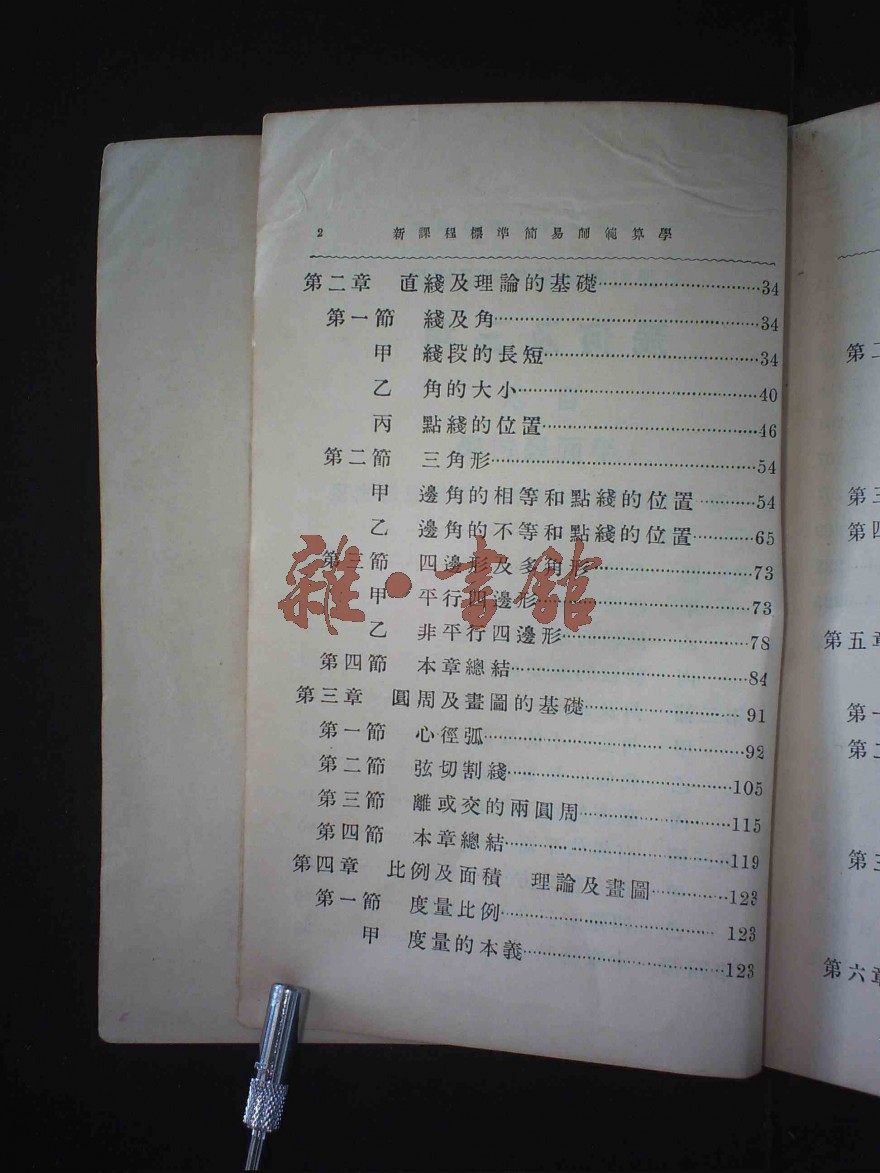 2 新課程標準簡易師範算學
第二章 直綫及理論的基礎……34
第一節 綫及角……34
甲 綫段的長短……34
乙 角的大小……40
丙 點綫的位置……46
第二節 三角形……54
甲 邊角的相等和點綫的位置……54
乙 邊角的不等和點綫的位置……65
第三節 四邊形及多角形……73
甲 平行四邊形……73
乙 非平行四邊形……78
第四節 本章總結……84
第三章 圓周及畫圖的基礎……91
第一節 心徑弧……92
第二節 弦切割綫……105
第三節 離或交的兩圓周……115
第四節 本章總結……119
第四章 比例及面積 理論及畫圖……123
第一節 度量比例……123
甲 度量的本義……123
雜·書館
第二
第三
第四
第五章
第一
第二
第三
第六章